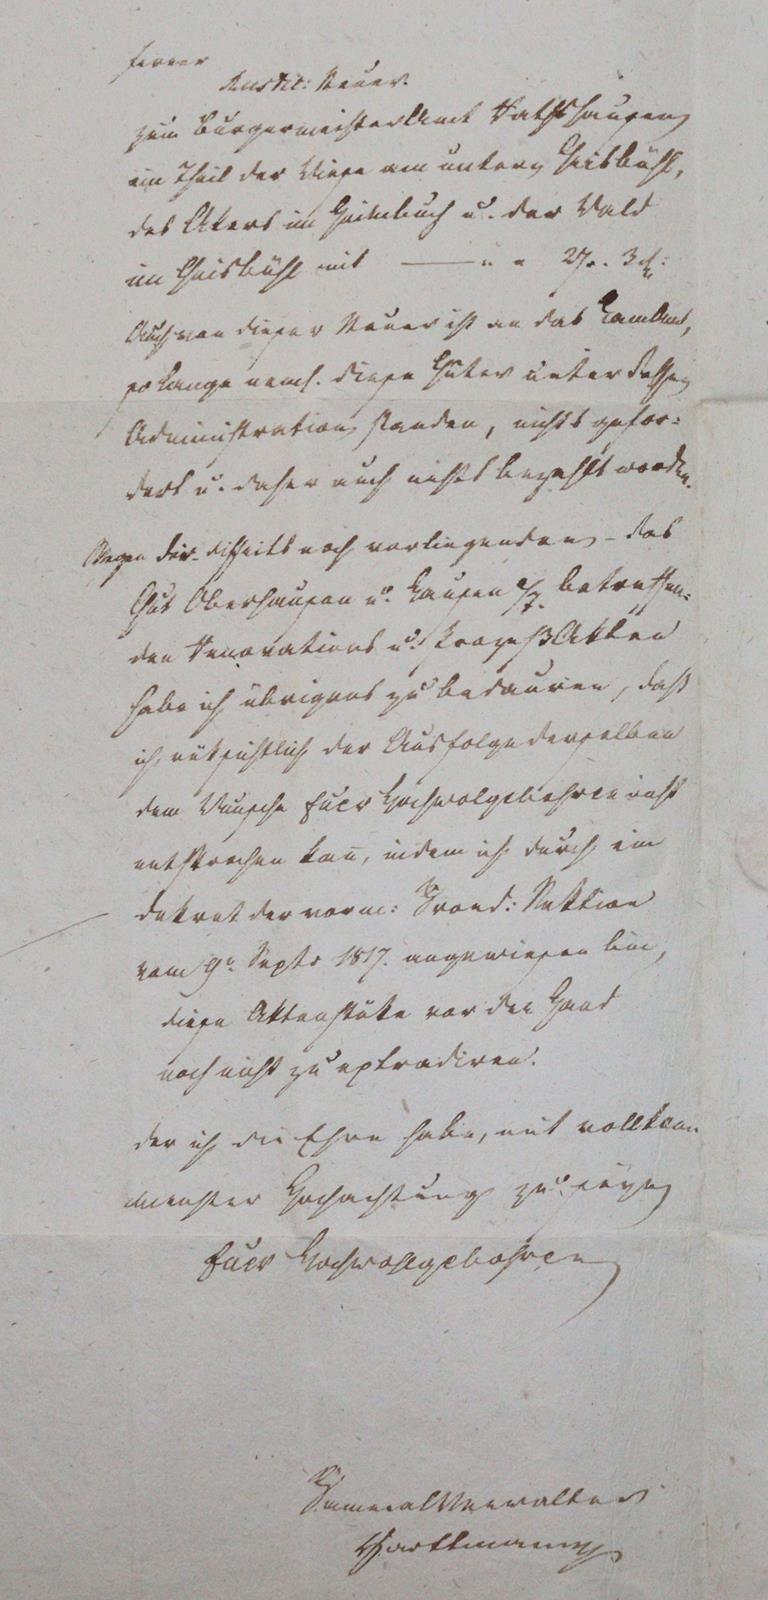 ferner
Rustic: Steuer.
zum Burgermeisteramt Rathshausen
ein Theil der Wiese am untern Geisbühl,
des Akers im Heimbuch u. der Wald
im Geisbühl mit — „ „ 27. 3
Auch von dieser Steuer ist an das Kamlamt,
so lange neml. diese Güter unter dessen
Administration standen, nichts gefor-
dert u. daher auch nichts bezahlt worden.
Wegen der disseits noch vorliegenden – das
Gut Oberhausen u. Hausen a/T. betreffen-
den Renovations u. Prozeß Akten
habe ich übrigens zu bedauren, daß
ich rüksichtlich der Ausfolge derselben
dem Wunsche Euer Hochwolgebohren nicht
entsprechen kan, indem ich durch ein
Dekret der vorm: Dround: Sektion
vom 9n Septr 1817. angewiesen bin,
diese Aktenstüke vor der Hand
noch nicht zu extradiren.
Der ich die Ehre habe, mit vollkom
menster Hochachtung zu seyn
Euer Hochwohlgebohren
Kameralverwalter
Harttmann